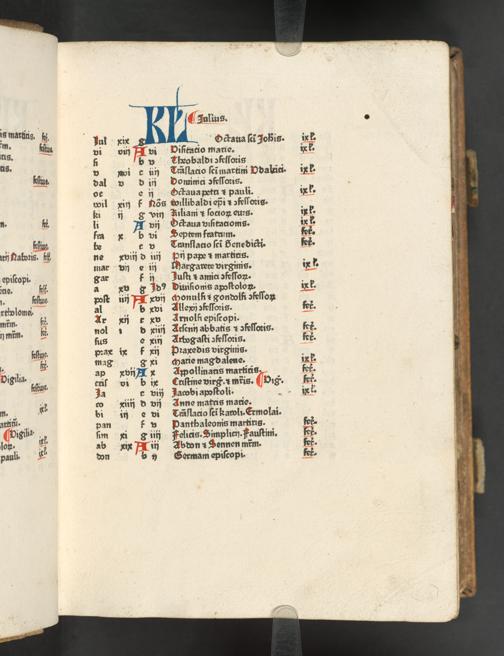 KL Iulius.
Iul xix g Octaua sci Johis. ix l'.
vi viij A vi Visitatio marie. ix l'.
si b v Theobaldi 2fessoris
v xvi c iiij Trāslacio sci martini Vdalrici. ix l'.
dal v d iij Dominici 2fessoris.
oc e ij Octaua petri ⁊ pauli. ix l'.
wil xiij f Nōs willibaldi epi ⁊ 2fessoris.
ki ij g viij Kiliani ⁊ socior eius. ix l'.
li A vij Octaua visitationis. ix l'.
fra x b vi Septem fratrum. fer.
be c v Translacio sci Benedicti. fer.
ne xviij d iiij Pij pape ⁊ martiris.
mar vij e iij Margarete virginis. ix l'.
gar f ij Justi ⁊ amici 2fessor.
a xv g Id9 Diuisionis apostolor. ix l'.
post iiij A xvij Monulfi ⁊ gondolfi 2fessor
al b xvi Allexij 2fessoris. fer.
Ar xij c xv Arnolfi episcopi.
nol i d xiiij Arsenij abbatis ⁊ 2fessoris. fer.
fus e xiij Arbogasti 2fessoris. fer.
prax ix f xij Praxedis virginis.
mag g xi Marie magdalene. ix l'.
ap xvij A x Appollinaris martiris. fer.
cris vi b ix Cristine virg. ⁊ mris. Vig. fer.
Ja c viij Jacobi apostoli. ix l'.
co xiiij d vij Anne matris marie.
bi iij e vi Trāslacio sci karoli. Ermolai.
pan f v Panthaleonis martiris. fer.
sim xi g iiij Felicis. Simplicij. Faustini. fer.
ab xix A iij Abdon ⁊ Sennen mrm. fer.
don b ij Germani episcopi. fer.
is martiris.
festiue.
festiue.
episcopi.
festiue.
Vigilia.
festiue.
Vigilia.
pauli. ix l'.